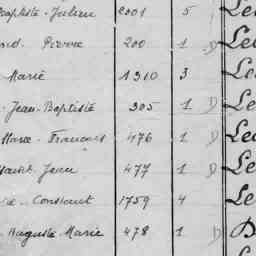 Baptiste-Julien 2001 5 Le
Pierre 200 1 D Le
Marie 1310 3 Le
Jean-Baptiste 305 1 D Le
Marie-François 476 1 D Le
Jean 477 1 D Le
Constant 1759 4 Le
Auguste Marie 478 1 D